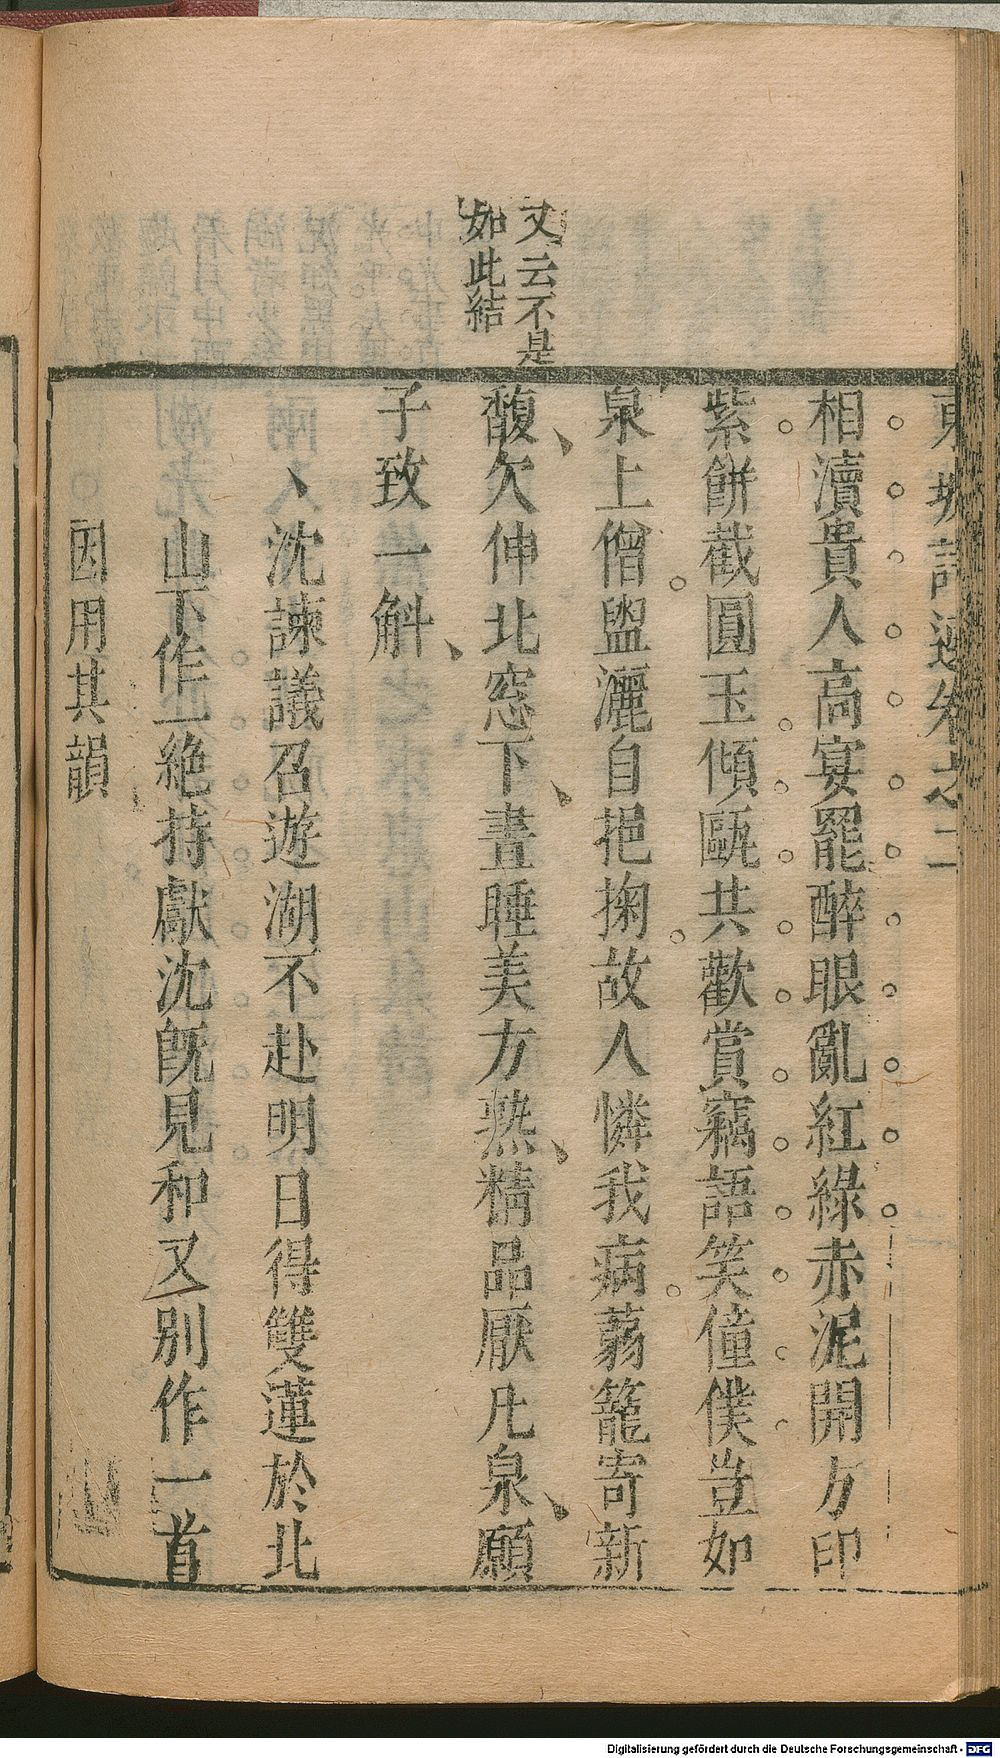 東坡詩選卷之二
相瀆貴人高宴罷醉眼亂紅綠赤泥開方印
紫餅截圓玉傾甌共歡賞竊語笑僮僕豈如
泉上僧盥灑自挹掬故人憐我病蒻籠寄新
馥欠伸北窓下晝睡美方熟精品厭凡泉願
子致一斛
又云不是
如此結
沈諫議召遊湖不赴明日得雙蓮於北
山下作一絶持獻沈旣見和又别作一首
因用其韻
Digitalisierung gefördert durch die Deutsche Forschungsgemeinschaft - DFG